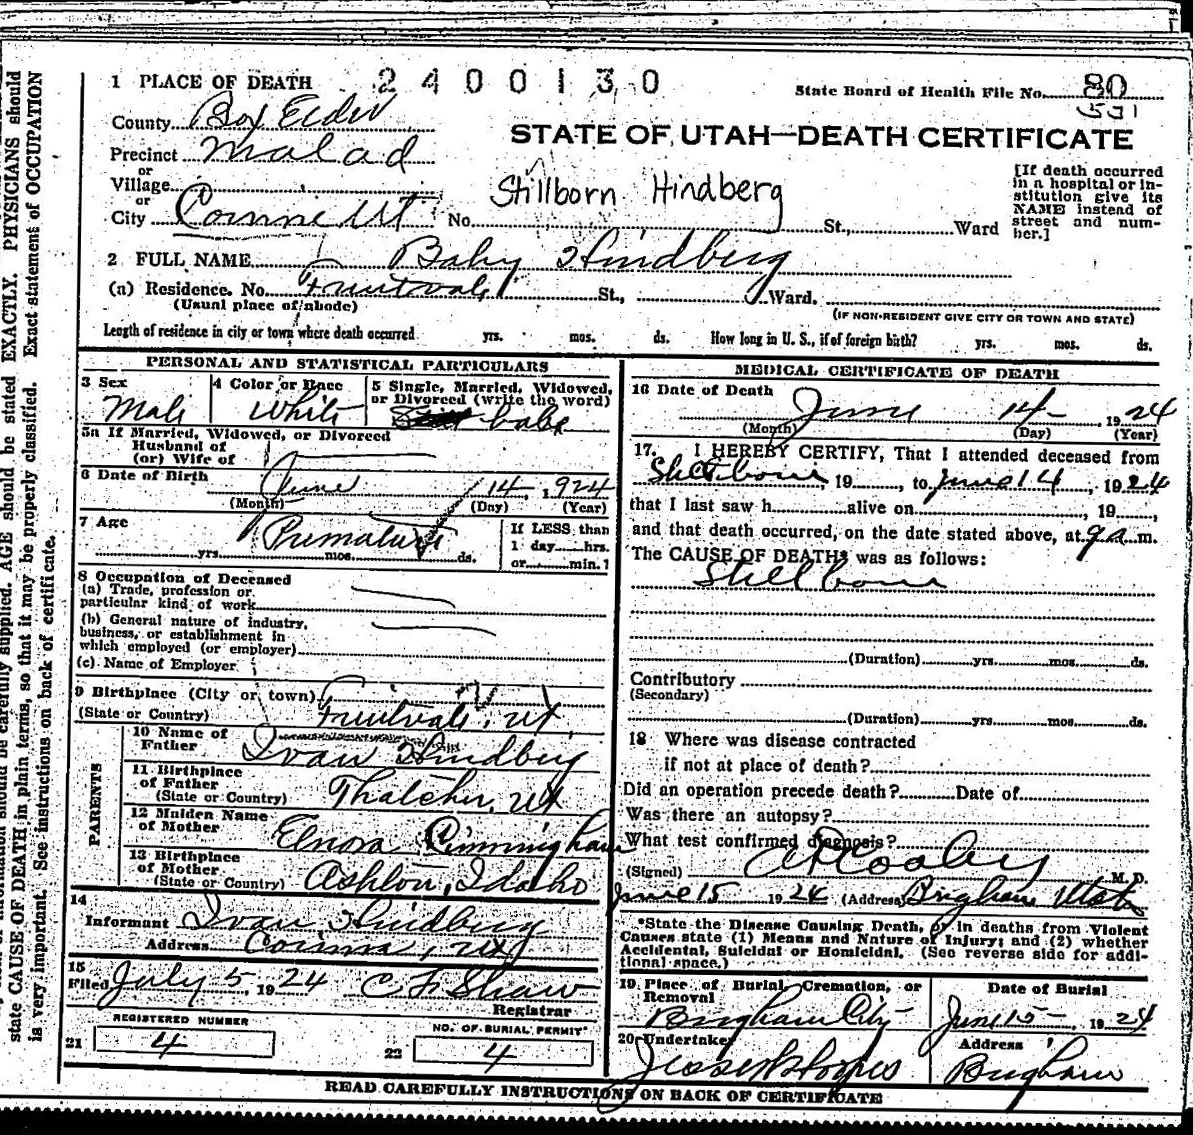 1 PLACE OF DEATH 2400130 State Board of Health File No. 80
531
County Box Elder
STATE OF UTAH—DEATH CERTIFICATE
Precinct Malad
or
Village
or
City Corinne Ut No. St., Ward
Stillborn Hindberg
[If death occurred
in a hospital or in-
stitution give its
NAME instead of
street and num-
ber.]
2 FULL NAME Baby Hindberg
(a) Residence. No. Fruitvale St., Ward.
(Usual place of abode) (IF NON-RESIDENT GIVE CITY OR TOWN AND STATE)
Length of residence in city or town where death occurred yrs. mos. ds. How long in U. S., if of foreign birth? yrs. mos. ds.
PERSONAL AND STATISTICAL PARTICULARS
3 Sex 4 Color or Race 5 Single, Married, Widowed,
or Divorced (write the word)
Male White babe
5a If Married, Widowed, or Divorced
Husband of
(or) Wife of
6 Date of Birth June 14, 1924
(Month) (Day) (Year)
7 Age Premature If LESS than
1 day hrs.
yrs. mos. ds. or min.?
8 Occupation of Deceased
(a) Trade, profession or
particular kind of work
(b) General nature of industry,
business, or establishment in
which employed (or employer)
(c) Name of Employer
9 Birthplace (City or town)
(State or Country) Fruitvale, Ut
PARENTS
10 Name of
Father Ivan Hindberg
11 Birthplace
of Father
(State or Country) Thatcher, Ut
12 Maiden Name
of Mother Elnora Cunningham
13 Birthplace
of Mother
(State or Country) Ashton, Idaho
14
Informant Ivan Hindberg
Address Corinne, Ut
15
Filed July 5, 1924 C F Shaw
Registrar
REGISTERED NUMBER NO. OF BURIAL PERMIT
21 4 22 4
MEDICAL CERTIFICATE OF DEATH
16 Date of Death June 14 1924
(Month) (Day) (Year)
17. I HEREBY CERTIFY, That I attended deceased from
Stillborn, 19, to June 14, 1924
that I last saw h alive on, 19,
and that death occurred, on the date stated above, at 9 a m.
The CAUSE OF DEATH* was as follows:
Stillborn
(Duration) yrs. mos. ds.
Contributory
(Secondary)
(Duration) yrs. mos. ds.
18 Where was disease contracted
if not at place of death?
Did an operation precede death? Date of
Was there an autopsy?
What test confirmed diagnosis?
(Signed) M. D.
June 15 1924 (Address) Brigham Utah
*State the Disease Causing Death, or in deaths from Violent
Causes state (1) Means and Nature of Injury; and (2) whether
Accidental, Suicidal or Homicidal. (See reverse side for addi-
tional space.)
19 Place of Burial, Cremation, or
Removal Date of Burial
Brigham City June 15 1924
20 Undertaker Address
Brigham
READ CAREFULLY INSTRUCTIONS ON BACK OF CERTIFICATE
should be carefully supplied. AGE should be stated EXACTLY. PHYSICIANS should
state CAUSE OF DEATH in plain terms, so that it may be properly classified. Exact statement of OCCUPATION
is very important. See instructions on back of certificate.